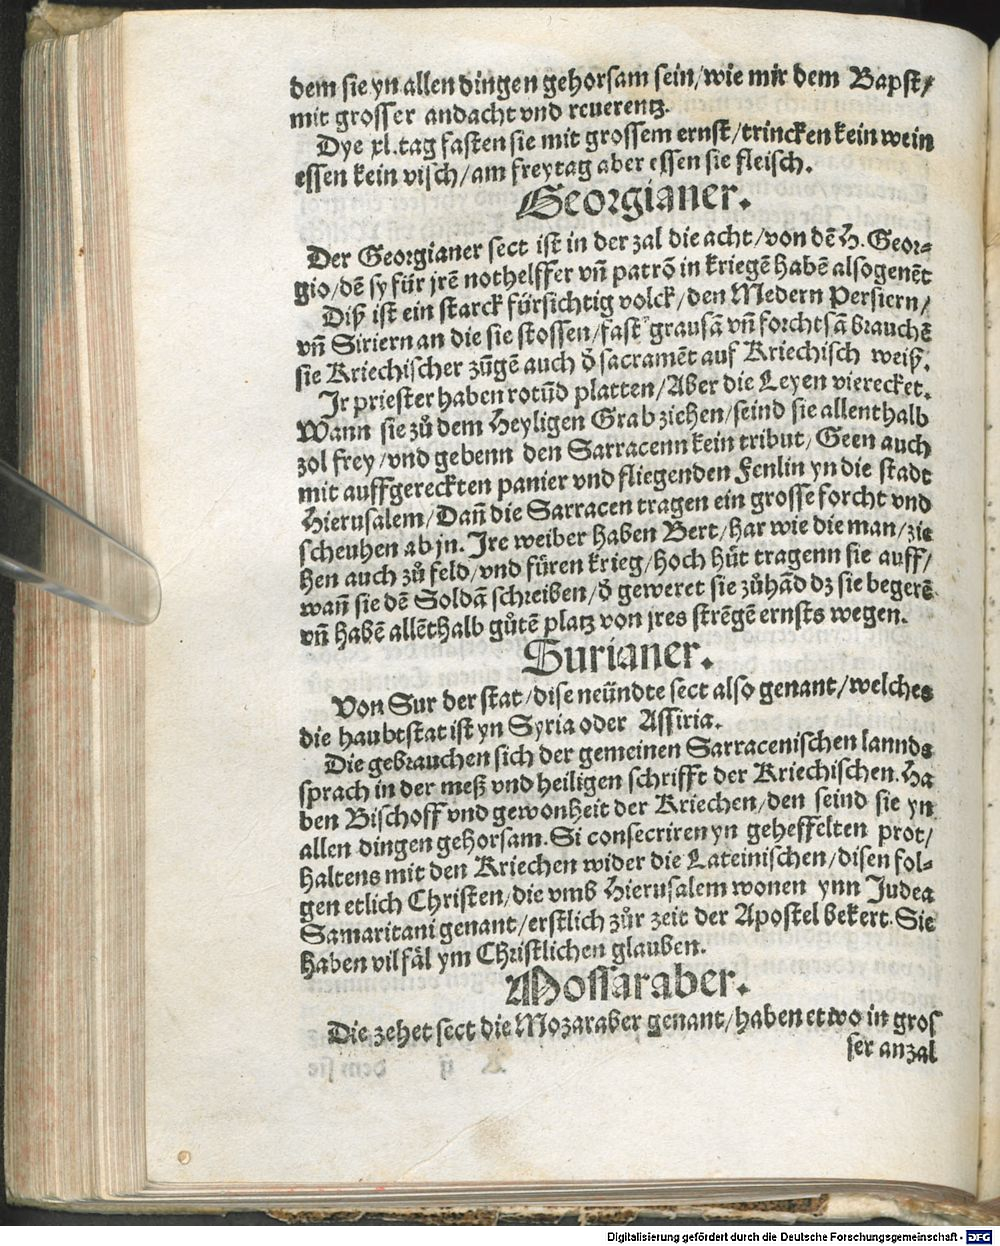 dem sie yn allen dingen gehorsam sein/wie mir dem Bapst/
mit grosser andacht vnd reuerentz.
Dye xl.tag fasten sie mit grossem ernst/trincken kein wein
essen kein visch/am freytag aber essen sie fleisch.
Georgianer.
Der Georgianer sect ist in der zal die acht/von dē H. Geor-
gio/dē sy für jrē nothelffer vn̄ patrō in kriegē habē also genēt
Diß ist ein starck fürsichtig volck/den Medern Persiern/
vn̄ Siriern an die sie stossen/fast grausā vn̄ forchtsā brauchē
sie Kriechischer zūgē auch d̄ sacramēt auf Kriechisch weiß.
Jr priester haben rotūd platten/Aber die Leyen vierecket.
Wann sie zů dem Heyligen Grab ziehen/seind sie allenthalb
zol frey/vnd gebenn den Sarracenn kein tribut/Geen auch
mit auffgereckten panier vnd fliegenden Fenlin yn die stadt
Hierusalem/Dan̄ die Sarracen tragen ein grosse forcht vnd
scheuhen ab jn. Jre weiber haben Bert/har wie die man/zie
hen auch zů feld/vnd füren krieg/hoch hüt tragenn sie auff/
wan̄ sie dē Soldā schreiben/d̄ geweret sie zůhād dz sie begerē
vn̄ habē allēthalb gůtē platz von jres strēgē ernsts wegen.
Surianer.
Von Sur der stat/dise neündte sect also genant/welches
die haubtstat ist yn Syria oder Assiria.
Die gebrauchen sich der gemeinen Sarracenischen lannds
sprach in der meß vnd heiligen schrifft der Kriechischen. Ha
ben Bischoff vnd gewonheit der Kriechen/den seind sie yn
allen dingen gehorsam. Si consecriren yn geheffelten prot/
haltens mit den Kriechen wider die Lateinischen/disen fol-
gen etlich Christen/die vmb Hierusalem wonen ynn Judea
Samaritani genant/erstlich zůr zeit der Apostel bekert. Sie
haben vil fäl ym Christlichen glauben.
Mossaraber.
Die zehet sect die Mozaraber genant/haben etwo in gros
ser anzal
Digitalisierung gefördert durch die Deutsche Forschungsgemeinschaft - DFG